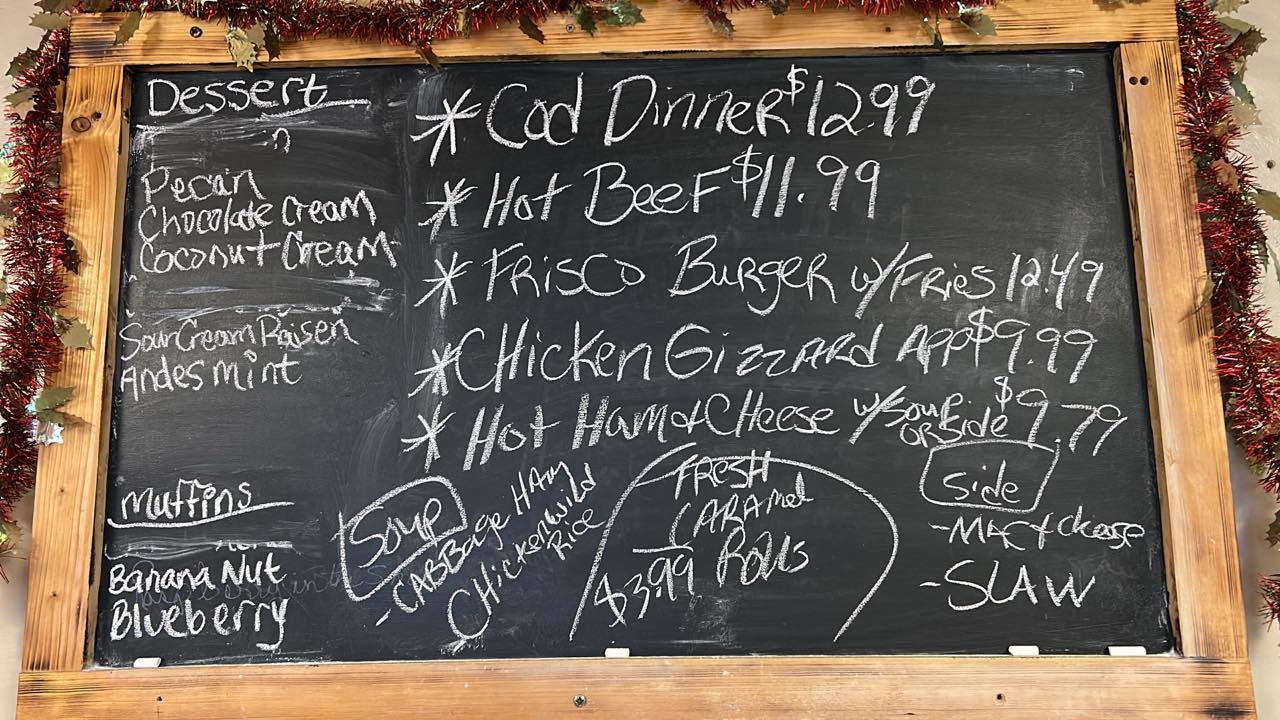 Dessert
Pecan
Chocolate Cream
Coconut Cream
Sour Cream Raisen
Andes mint
Muffins
Banana Nut
Blueberry
* Cod Dinner $12.99
* Hot Beef $11.99
* Frisco Burger w/Fries 12.49
* Chicken Gizzard App $9.99
* Hot Ham & Cheese w/soup or side $9.79
Soup
- Cabbage Ham
Chicken Wild
Rice
Fresh
Caramel
Rolls
$3.99
Side
- Mac & cheese
- SLAW